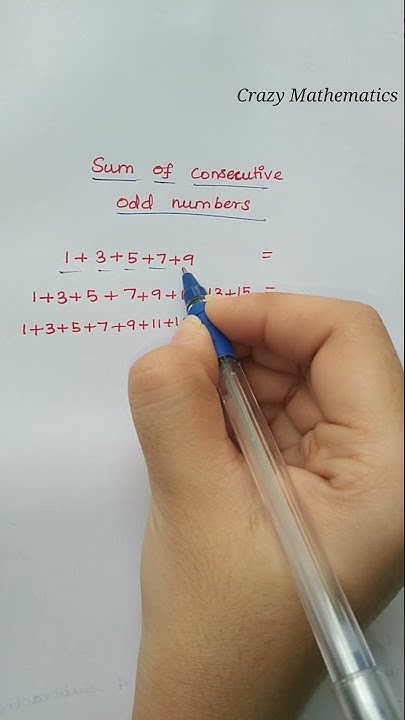 Crazy Mathematics
Sum of consecutive
odd numbers
1+ 3+5+7+9 =
1+3+5 + 7+9+ 13+15 =
1+3+5+7+9+11+